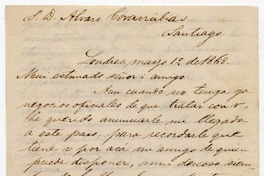 S. D. Alvaro Covarrubias.
Santiago.
Londres, marzo 12 de 1868.
Mui estimado señor i amigo:
Aun cuando no tengo ya
negocios oficiales de que tratar con V.
he querido anunciarle mi llegada
a este país, para recordarle que
tiene V. por acá un amigo de quien
puede disponer, mui deseoso